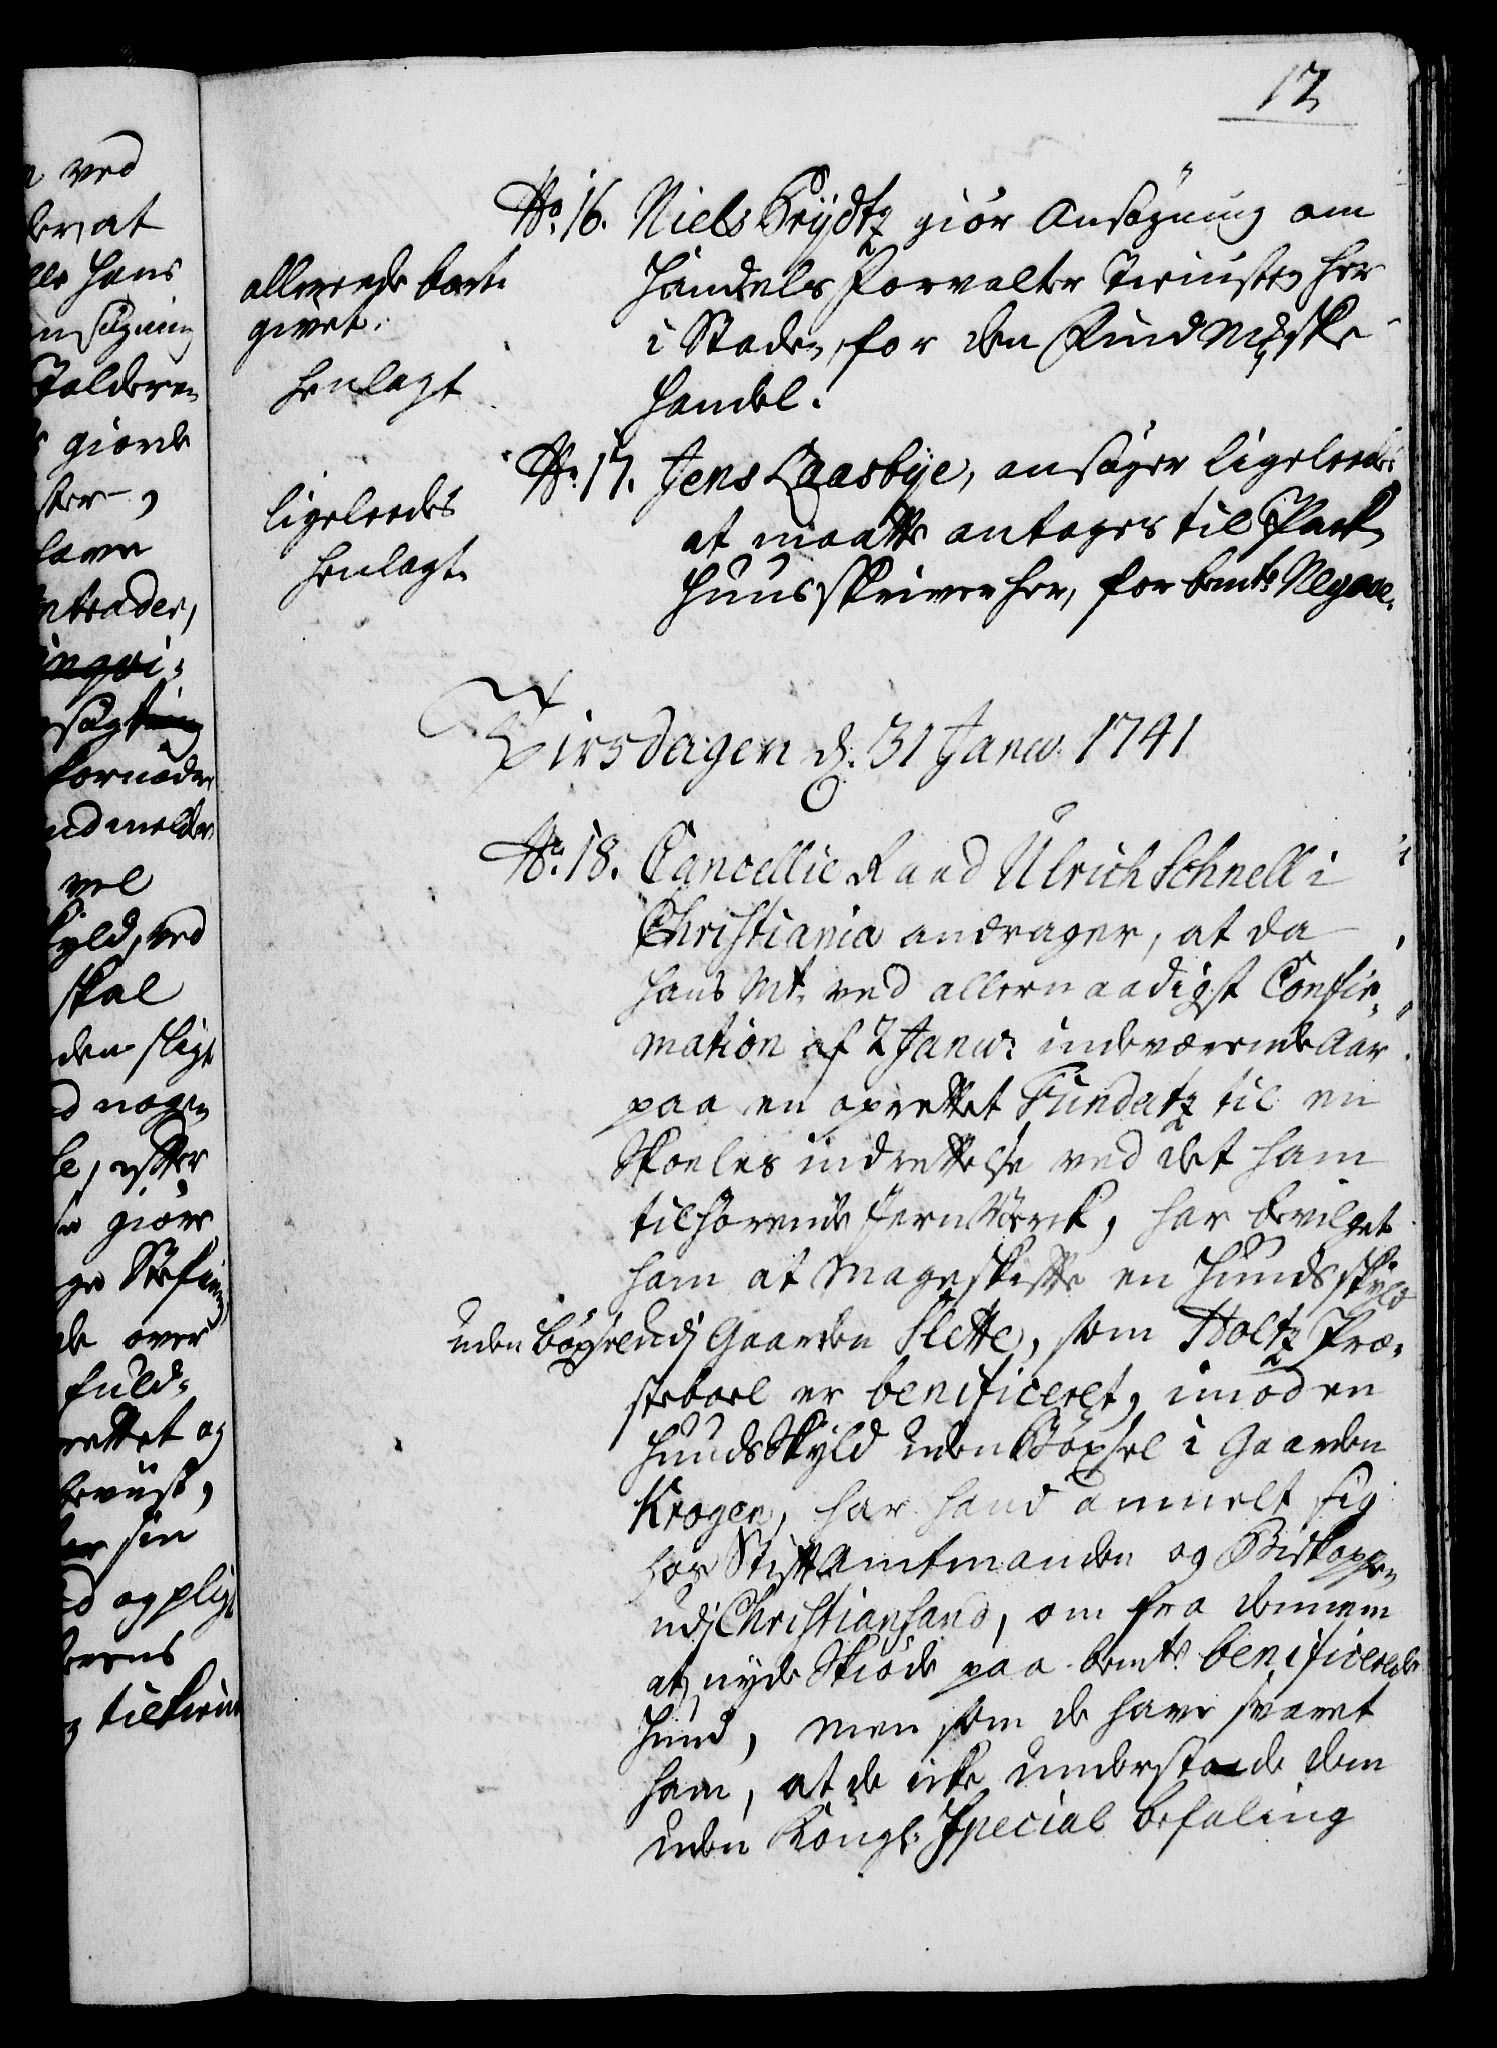 12
No. 16. Niels Krÿdtz giør Ansøgning om
Handels Forvalter Tienisten her
i Staden, for den Find Mkske
Handel.
allereede bort-
givet.
henlagt
No. 17. Jens Laasbÿe, ansøger ligeleedes
at maatte antages til Pack
Huus Skriver her, for bemte Negoce.
ligeleedes
henlagt.
Tirsdagen d. 31 Janu. 1741
No. 18. Cancellie Raad Ulrich Schnell i
Christiania andrager, at da
Hans Mt. ved allernaadigst Confir-
mation af 2 Janu: indeværende Aar
paa en oprettet Fundatz til en
Skoeles indrettelse ved det ham
tilhørende Jern Værck, har bevilget
ham at Mageskifte en Hunds Skyld
uden bøxsel udj Gaarden Slette, som Holtz Præ-
steboel er beneficeret, imod en
Hunds Skyld uden Bøxsel i Gaarden
Krogen, har hand anmelt sig
hos Stiftamtmanden og Biskoppen
udj Christiansand, om fra dennem
at nyde Skiøde paa bemte benificerede
Hund, men som de have svaret
ham, at de icke understaae de dem
uden Kongl: Special Befaling
n ved
hans
giorde
skal
den sligt
nogen
giøre
de over
fuld-
rettet og
sin